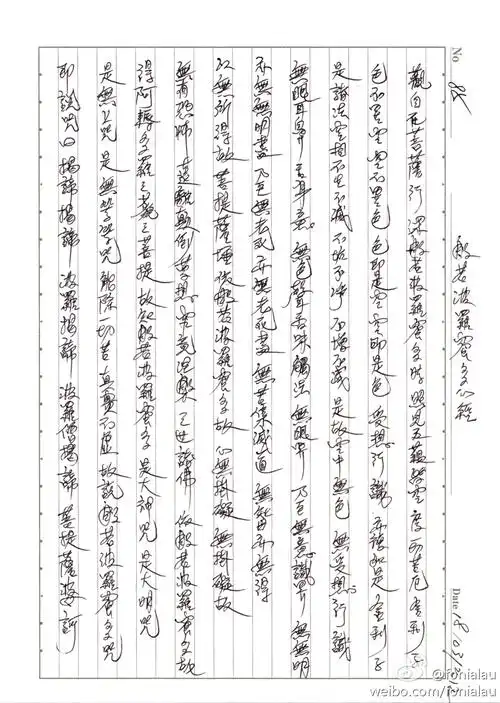 No
般若波羅蜜多心經
Date 18/03/2012
觀自在菩薩行深般若波羅蜜多時 照見五蘊皆空 度一切苦厄 舍利子
色不異空 空不異色 色即是空 空即是色 受想行識 亦復如是 舍利子
是諸法空相 不生不滅 不垢不淨 不增不減 是故空中無色 無受想行識
無眼耳鼻舌身意 無色聲香味觸法 無眼界 乃至無意識界 無無明
亦無無明盡 乃至無老死 亦無老死盡 無苦集滅道 無智亦無得
以無所得故 菩提薩埵 依般若波羅蜜多故 心無掛礙 無掛礙故
無有恐怖 遠離顛倒夢想 究竟涅槃 三世諸佛 依般若波羅蜜多故
得阿耨多羅三藐三菩提 故知般若波羅蜜多 是大神咒 是大明咒
是無上咒 是無等等咒 能除一切苦 真實不虛 故說般若波羅蜜多咒
即說咒曰 揭諦 揭諦 波羅揭諦 波羅僧揭諦 菩提薩婆訶
@fonialau
weibo.com/fonialau